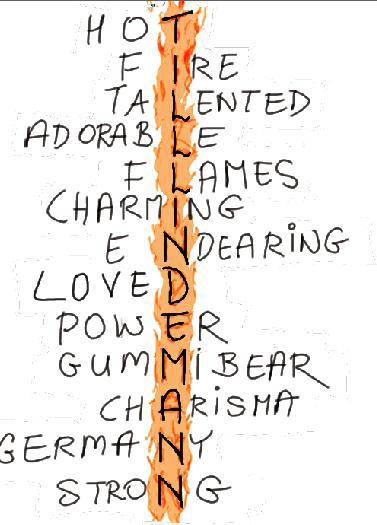 HOT
FIRE
TALENTED
ADORABLE
FLAMES
CHARMING
ENDEARING
LOVED
POWER
GUMMiBEAR
CHARISMA
GERMANY
STRONG